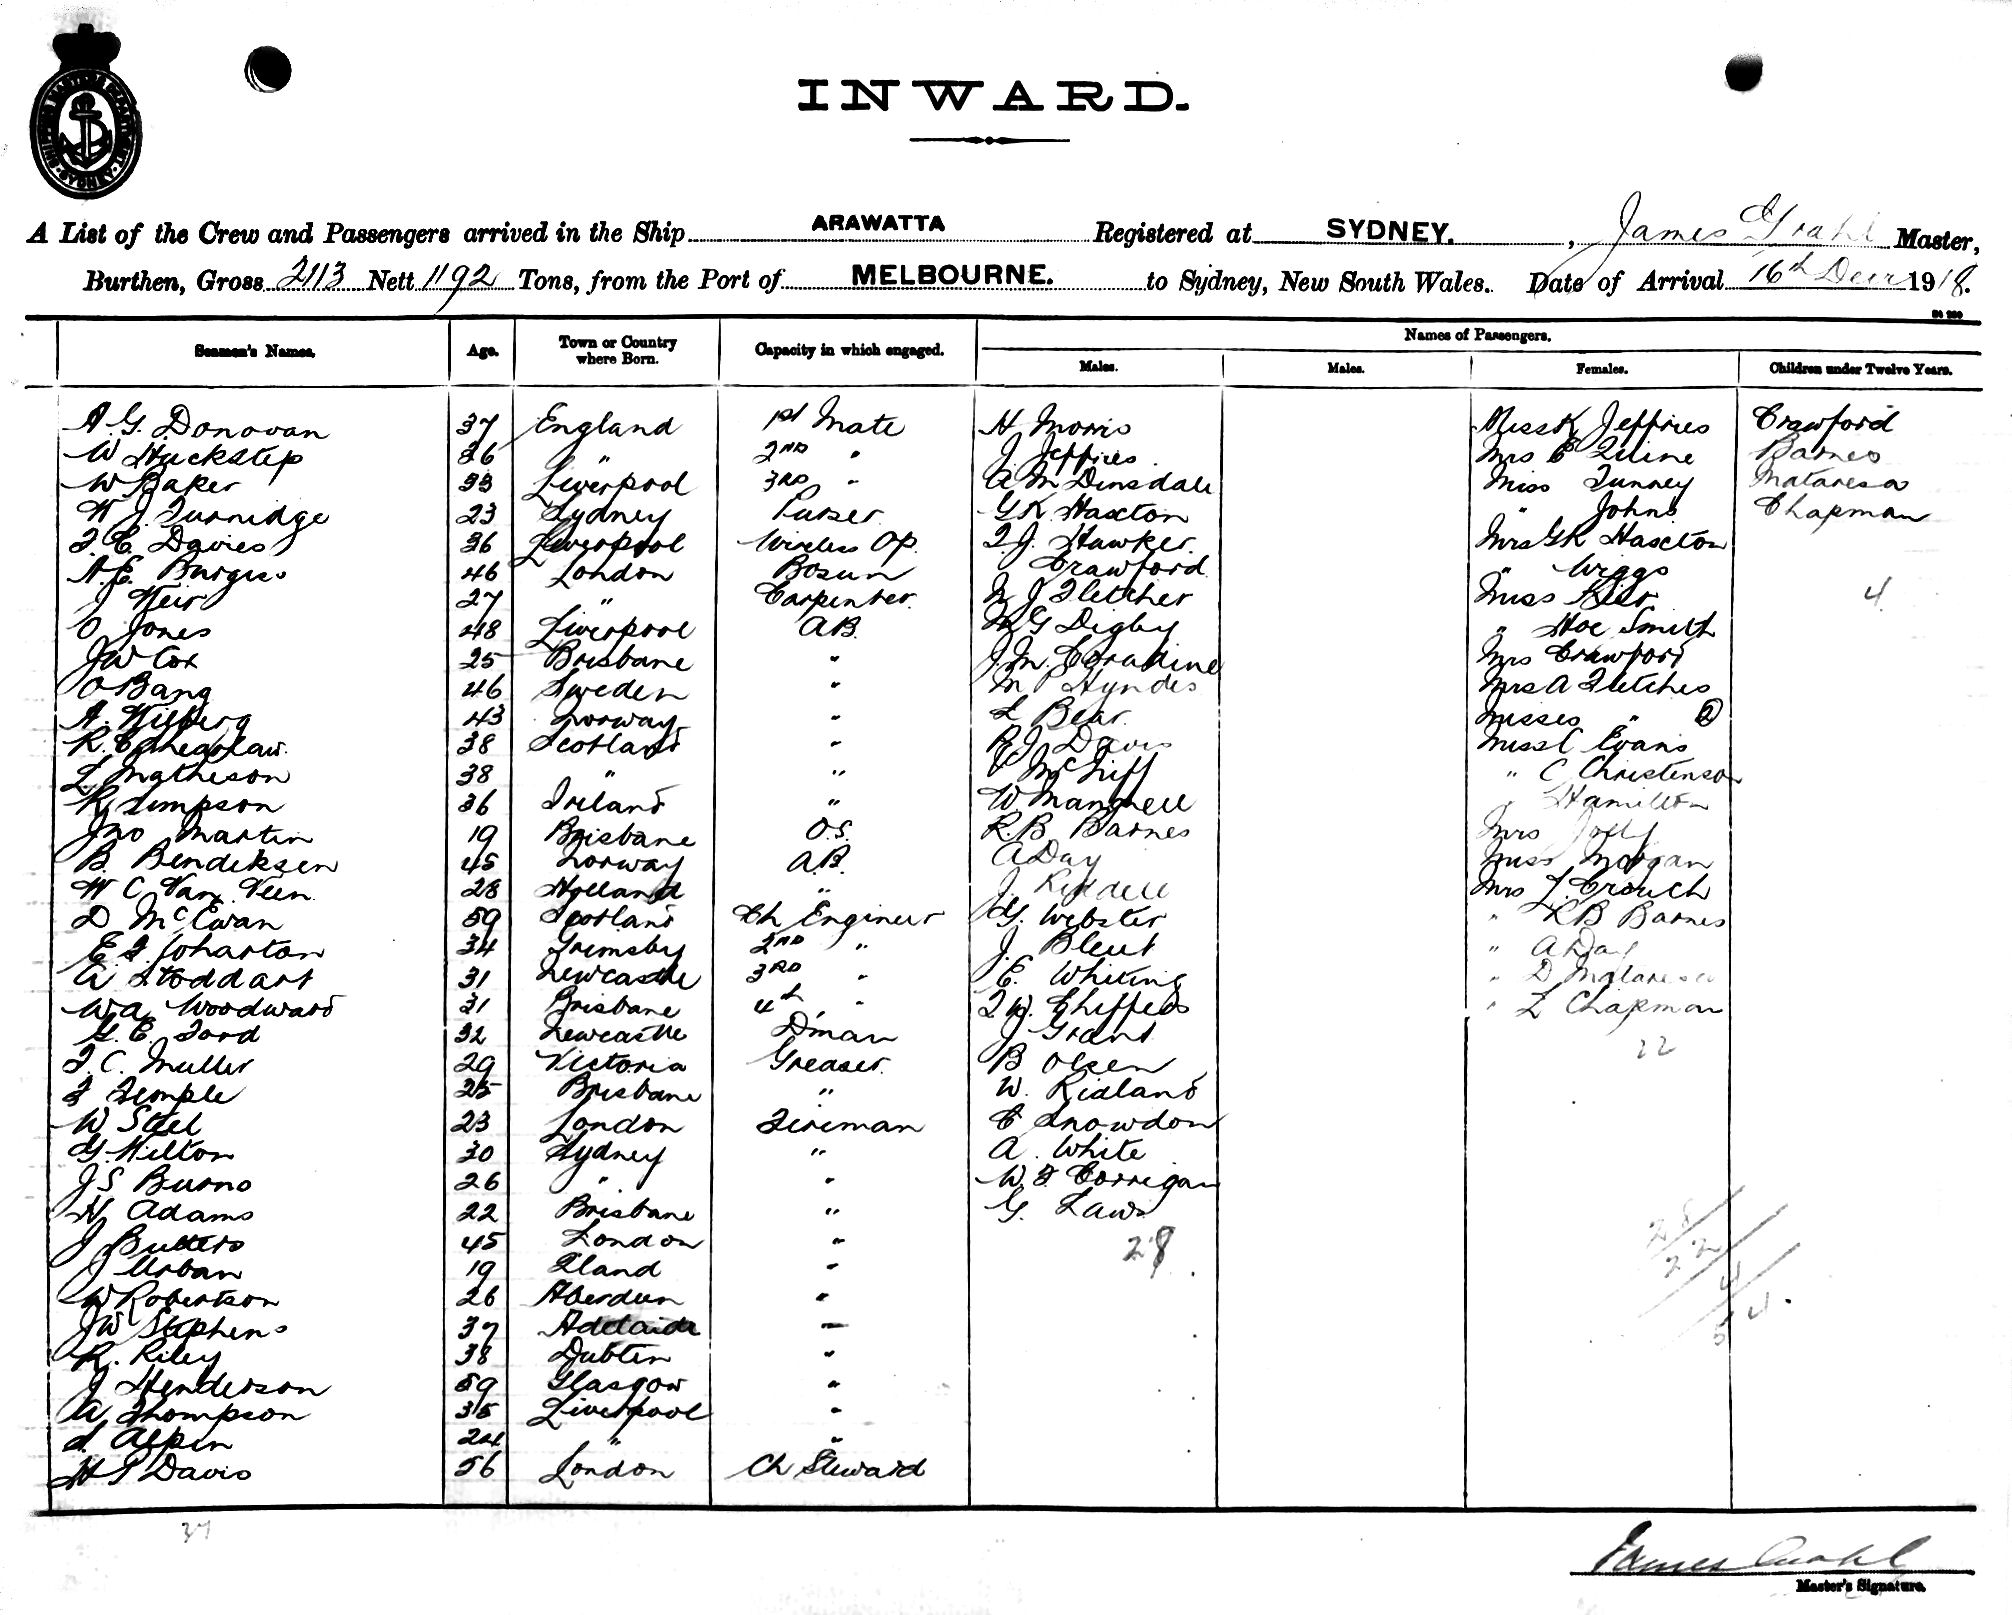 SHIPPING MASTER'S DEPARTMENT SYDNEY
INWARD.
A List of the Crew and Passengers arrived in the Ship ARAWATTA Registered at SYDNEY. , James Grahl Master,
Burthen, Gross 2113 Nett 1192 Tons, from the Port of MELBOURNE. to Sydney, New South Wales. Date of Arrival 16th Decr 1918.
Seamen's Names. Age. Town or Country where Born. Capacity in which engaged. Names of Passengers.
Males. Males. Females. Children under Twelve Years.
A. G. Donovan 37 England 1st Mate H Morris Miss K Jeffries Crawford
W Huckstep 26 " 2ND " J Jeffries Mrs E Barnes
W Baker 33 Liverpool 3RD " A M Dinsdale Miss Tunney Mataresa
W J Turnidge 23 Sydney Purser G K Haxton " Johns Chapman
F. E. Davies 36 Liverpool Wireless Op. F. J. Hawker Mrs G K Haxton
A. E. Burgess 46 London Bosun Crawford " Wiggs
J Weir 27 " Carpenter J Fletcher Miss Kerr 4
O Jones 48 Liverpool A.B. G Digby " Hoe Smith
J W Cox 25 Brisbane " J. M. Mrs Crawford
O Bang 46 Sweden " M P Hyndes Mrs A Fletcher
A. Wilberg 43 Norway " L Bear Misses " 2
R. 38 Scotland " R J Davis Miss C Evans
L Matheson 38 " " " C Christenson
R Simpson 36 Ireland " W Mangnell " Hamilton
Jno Martin 19 Brisbane O.S. R. B Barnes Mrs
B. Bendiksen 45 Norway A.B. A Day Miss Morgan
W C Van Veen 28 Holland " J. Riddell Mrs L Crouch
D McEwan 59 Scotland Ch Engineer G. Webster " R B Barnes
E. F. Wharton 34 Grimsby 2ND " J. " A Day
A Stoddart 31 Newcastle 3RD " E. Whiting " D Mataresa
W A Woodward 31 Brisbane 4th " F W " L Chapman
G. E. Ford 32 Newcastle D'man J Grant
F. C. Muller 29 Victoria Greaser B Olsen 22
F Temple 25 Brisbane " W. Ridland
W Steel 23 London Fireman C Snowdon
G. Hilton 30 Sydney " A. White
J S Burns 26 " " W. F Corrigan
H Adams 22 Brisbane " G. Laws
J Butters 45 London " 28 28
J Urban 19 " 22
W Robertson 26 Aberdeen " 4
J W Stephens 37 Adelaide " 54
R. Riley 38 Dublin "
J Henderson 59 Glasgow "
A Thompson 35 Liverpool "
A. Alpin 24 " "
H S Davis 56 London Ch Steward
37
James Grahl
Master's Signature.